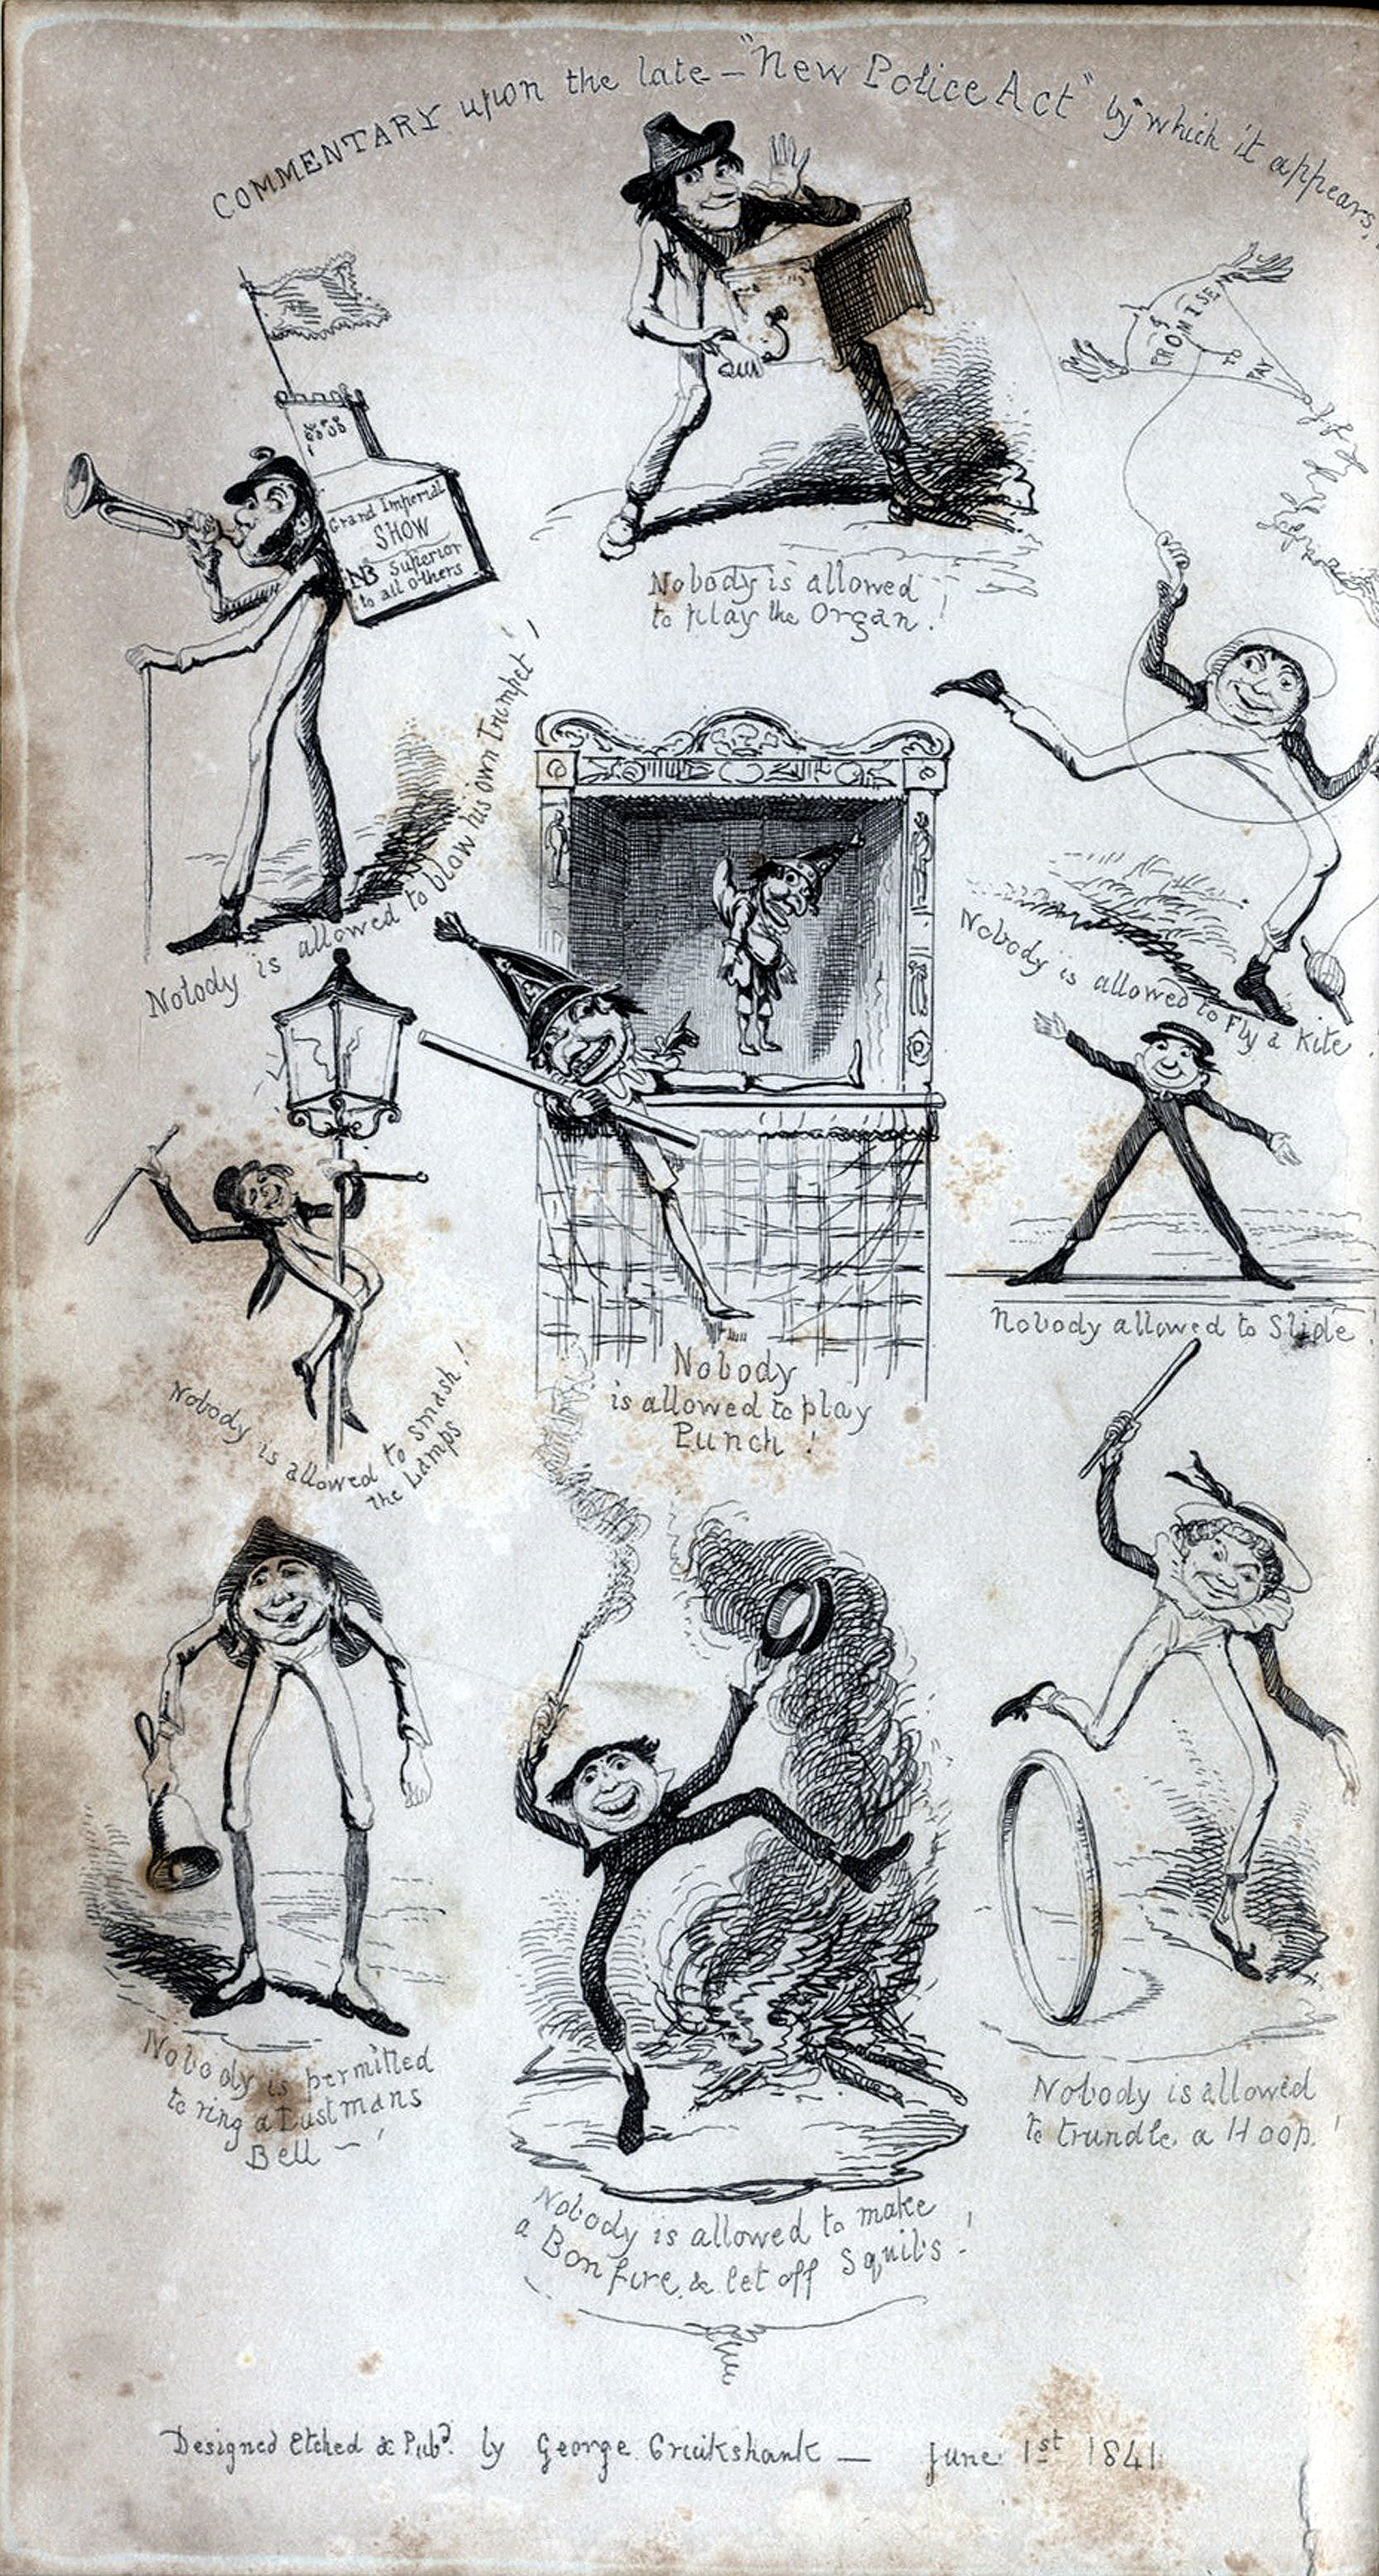 COMMENTARY upon the late — "New Police Act" by which it appears,
PROMISE
TO
PAY
Grand Imperial
SHOW
NB Superior
to all others
Nobody is allowed
to play the Organ!
Nobody is allowed to blow his own Trumpet!
Nobody is allowed to Fly a Kite!
Nobody is allowed to smash!
the Lamps
Nobody
is allowed to play
Punch!
Nobody allowed to Slide!
Nobody is permitted
to ring a Dustmans
Bell — !
Nobody is allowed to make
a Bonfire, & let off Squibs - !
Nobody is allowed
to trundle a Hoop!
Designed Etched & Pubd. by George Cruikshank — June 1st 1841